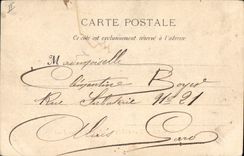 II
CARTE POSTALE
Ce côté est exclusivement réservé à l'adresse
Mademoiselle
Clementine Boyer
Rue N° 21
Alais Gard